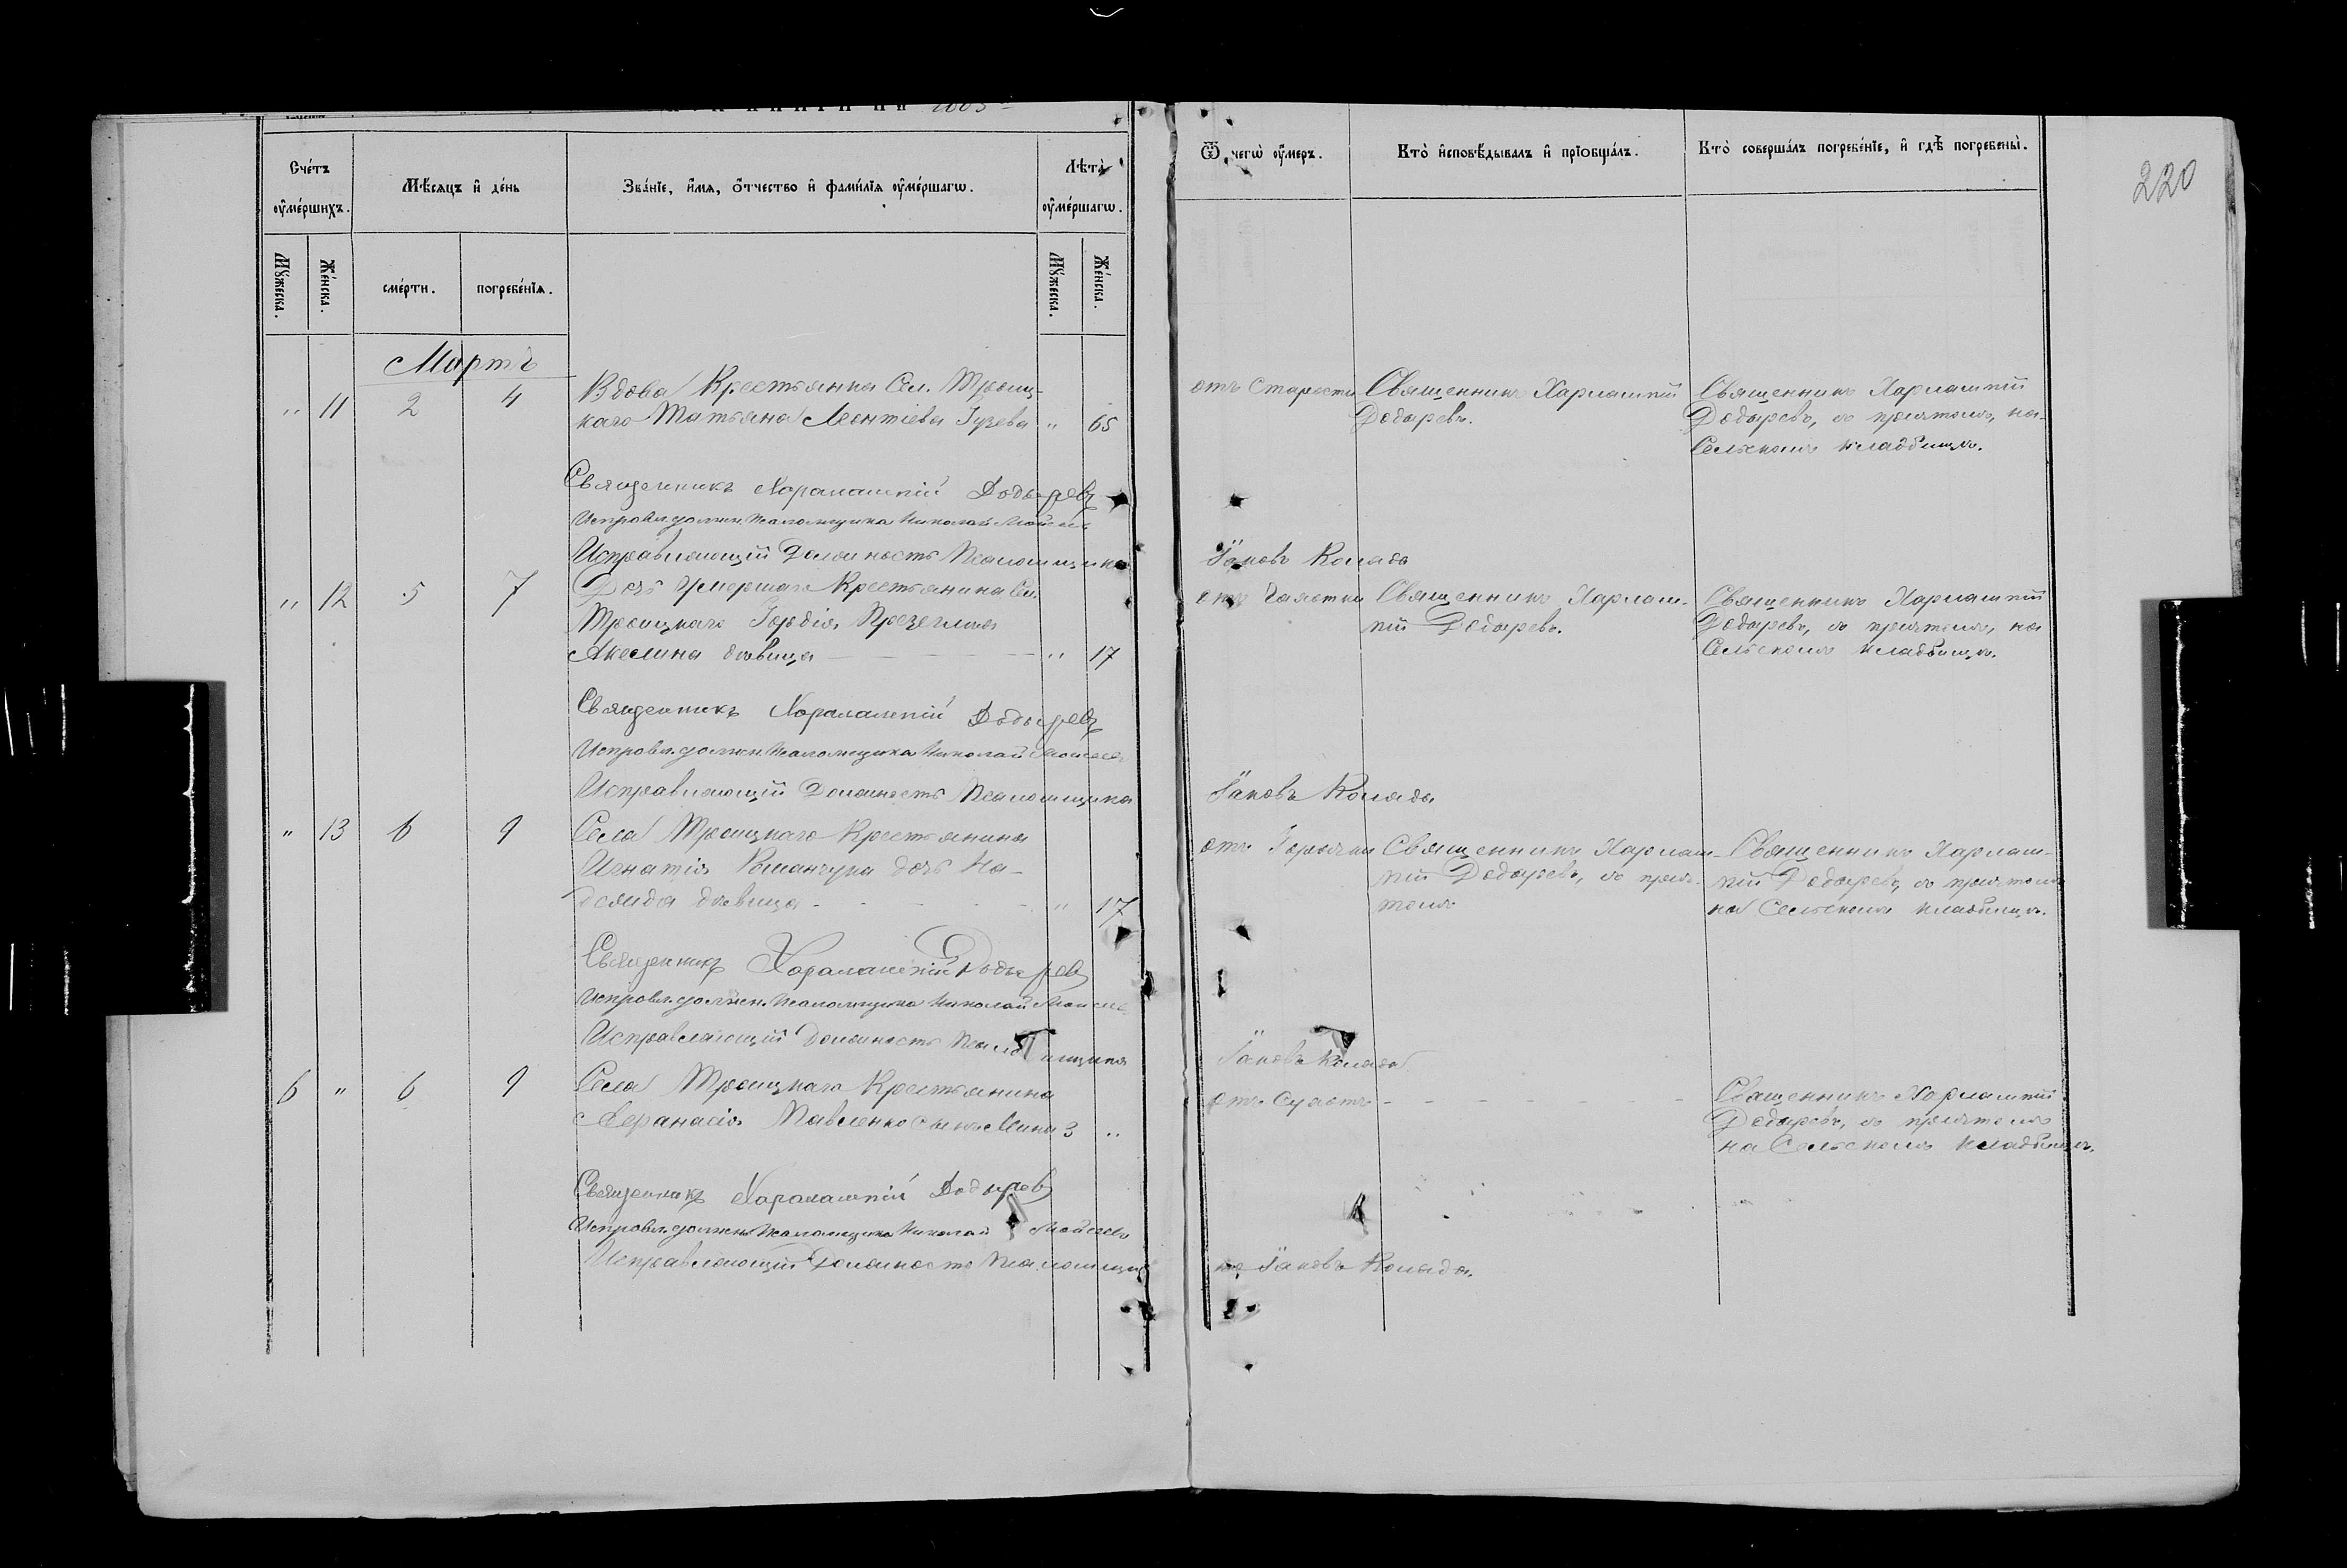 220
Счетъ умершихъ.
Мужеска.
Женска.
Мѣсяцъ и день
смерти.
погребенія.
Званіе, имя, отчество и фамилія умершагѡ.
Лѣта умершагѡ.
Мужеска.
Женска.
Ѿ чегѡ умеръ.
Кто исповѣдывалъ и пріобщалъ.
Кто совершалъ погребеніе, и гдѣ погребены.
Мартъ
" 11 2 4
Вдова Крестьянка Сел. Троиц-
каго Татьяна Леонтіева Гузева " 65
отъ Старости
Священникъ Харлампій
Додыревъ.
Священникъ Харлампій
Додыревъ, съ причтомъ, на
Сельскомъ кладбищѣ.
Священникъ Харалампій Додыревъ
Исправл. должн. Псаломщика Николай
Исправляющій Должность Псаломщика Іаковъ Коляда
" 12 5 7
Дочь Умершаго Крестьянина Сел.
Троицкаго Гордія
Акелина дѣвица " 17
отъ Чахотки
Священникъ Харлам-
пій Додыревъ.
Священникъ Харлампій
Додыревъ, съ причтомъ, на
Сельскомъ кладбищѣ.
Священникъ Харалампій Додыревъ
Исправл. должн. Псаломщика Николай
Исправляющій Должность Псаломщика Іаковъ Коляда
" 13 6 9
Села Троицкаго Крестьянина
Игнатія дочь На-
дежда дѣвица " 17
отъ Горячки
Священникъ Харлам-
пій Додыревъ, съ прич-
томъ
Священникъ Харлам-
пій Додыревъ, съ причтомъ
на Сельскомъ кладбищѣ.
Священникъ Харалампій Додыревъ
Исправл. должн. Псаломщика Николай
Исправляющій Должность Псаломщика Іаковъ Коляда
6 " 6 9
Села Троицкаго Крестьянина
Афанасія Павленко сынъ 3 "
отъ
Священникъ Харлампій
Додыревъ, съ причтомъ
на Сельскомъ кладбищѣ.
Священникъ Харалампій Додыревъ
Исправл. должн. Псаломщика Николай
Исправляющій Должность Псаломщика Іаковъ Коляда.